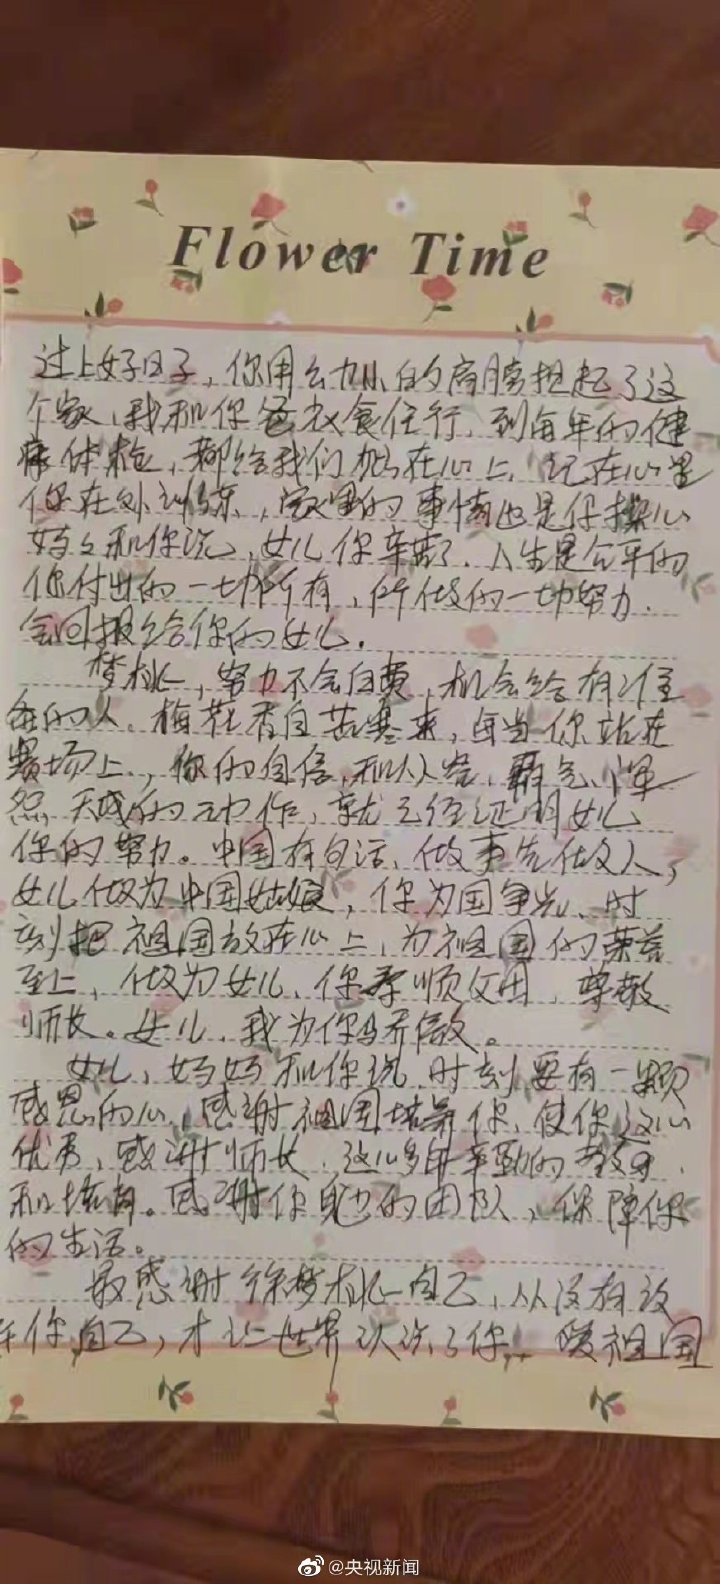 Flower Time
过上好日子，你用幼小的肩膀担起了这
个家，我和你爸衣食住行，到每年的健
康体检，都给我们挂在心上，记在心里
你在外训练，家里的事情也是你操心
妈妈和你说，女儿你辛苦了．人生是公平的
你付出的一切所有，所做的一切努力．
会回报给你的女儿．
梦桃，努力不会白费，机会给有准
备的人。梅花香自苦寒来，每当你站在
赛场上，你的自信，和从容，霸气，浑
然天成的动作，就已经证明女儿
你的努力。中国有句话，做事先做人，
女儿做为中国姑娘，你为国争光，时
刻把祖国放在心上，为祖国的荣誉
至上，做为女儿，你孝顺父母，尊敬
师长。女儿，我为你骄傲。
女儿，妈妈和你说，时刻要有一颗
感恩的心，感谢祖国培养你，使你这么
优秀，感谢师长，这么多年辛勤的教导，
和培育。感谢你身边的团队，保障你
的生活。
最感谢徐梦桃自己，从没有放
弃你自己，才让世界认识了你，祖国
@央视新闻